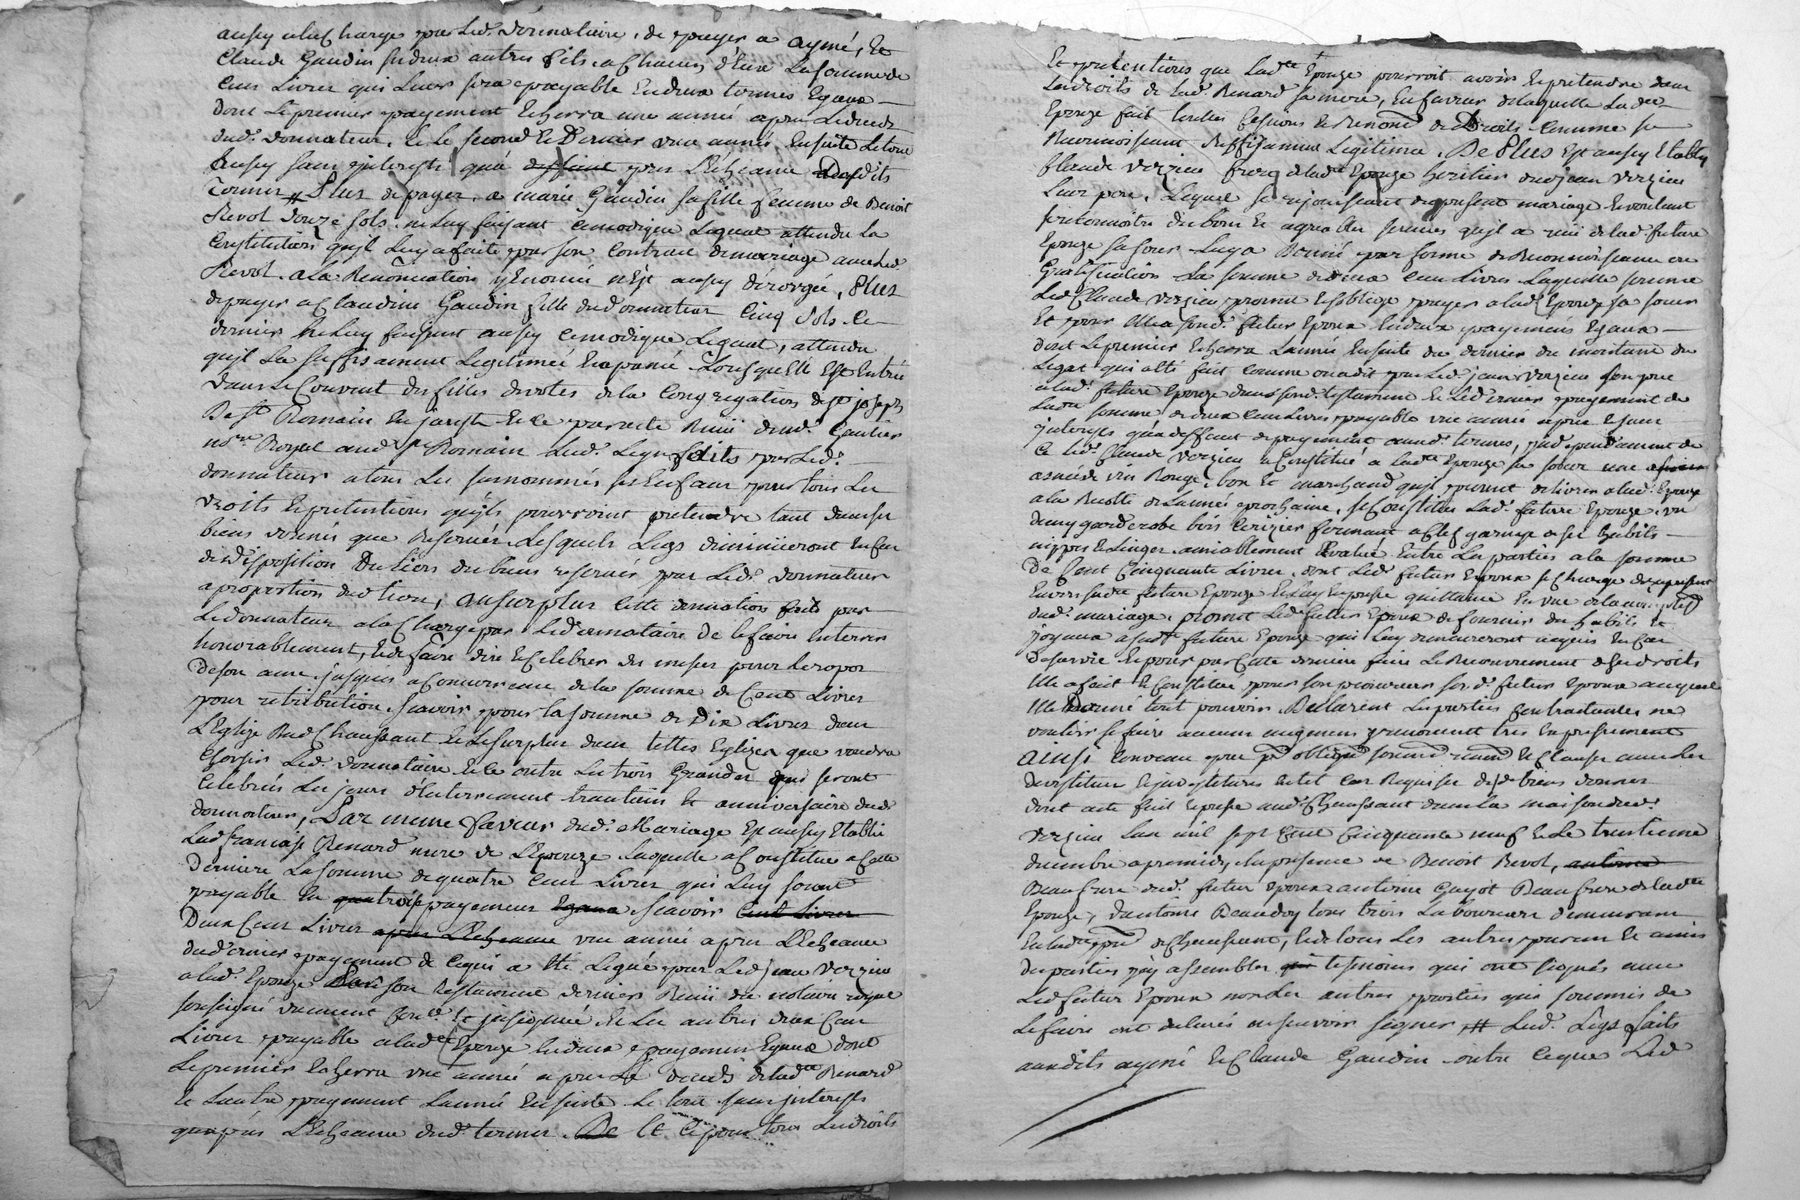 aussy a la Charge par led. donnataire, de payer a aymé, et
Claude Gaudin ses deux autres fils a Chacun d'Eux La somme de
Cent Livres qui Leur sera payable En deux termes Egaux
dont Le premier payement Echerra une année apres Le deceds
dud. donnateur, Et Le second et Dernier une année Ensuite Le tout
Aussy sans jnterests qua deffaut par L'Echeance Desdits
Termes # Plus de payer, a marie Gaudin sa fille femme de Benoit
Revol Douze sols, ne Luy faisant Ce modique Legat attendu La
Constitution qu'jl Luy a faite par son Contrat de mariage avec led.
Revol, a La Renonciation y Enoncée n'Est aussy dérogée, Plus
de payer a Claudine Gaudin fille dud donnateur Cinq Sols, Ce
dernier ne Luy faisant aussy Ce modique Legat, attendu
qu'jl La suffisament Legitimée Lorsqu'Elle Est Entrée
dans Le Couvent des filles devotes de la Congregation de st joseph
De st Romain En jarest Et Ce par acte Reçu dud. Gautier
nore Royal aud. st Romain Lesd. Legs faits par Led.
donnateur a tous Les surnommés ses Enfans pour tous Les
droits Et pretentions qu'jls pourroint pretendre tant dans ses
biens donnés que Reservés, Lesquels Legs diminueront En Cas
de disposition Du tiers des biens reservés par Led. donnateur
a proportion du tiers, au surplus Cette donnation faite par
Le donnateur a la Charge par Le donnataire de Le faire Enterrer
honnorablement, Et de faire dire Et Celebrer des messes pour Le repos
De son ame jusques a Concurrance de la somme de Cent Livres
pour retribution, scavoir pour la somme de Dix Livres dans
L'Eglise Dud Chaussant Et Le surplus dans telles Eglizes que voudra
Choisir Led. donnataire Et Ce outre Les trois Grandes qui seront
Celebrées Les jours d'Enterrement trantain Et anniversaire dud.
donnateur, Par meme faveur dud. Mariage Est aussy Etablie
Lad françoise Renard mere de L'Epouze Laquelle a Constitué a Cette
Derniere La somme de quatre Cent Livres qui Luy seront
payable En quatrois payemens Egaux scavoir Cent Livres
Deux Cens Livres apres L'Echeance une année apres L'Echeance
du dernier payement de Ce qui a Eté Legué par Led jean Verzieu
a lad. Epouze Par son Testament dernier Reçu du notaire royal
soussigné dument Conlé Et jnsignué, Et Les autres deux Cens
Livres payable a lad. Epouze En deux payemens Egaux dont
Le premier Echerra une année apres Le deceds de lad. Renard
Et L'autre payement L'année Ensuite Le tout sans jnterests
qu'apres L'Echeance dud. termes. De Et Ce pour tous Les droits
Et pretentions que Lad. Epouze pourroit avoir Et pretendre dans
Les droits de Lad. Renard sa mere, En faveur de laquelle Lad.
Epouze fait toutes Cessions Et Renon. de Droits Comme se
Reconnoissant suffisamment Legitimée. De Plus Est aussy Etably
Claude Verzieu frere de lad. Epouze heritier dud jean Verzieu
Leur pere, Lequel se rejouissant du present mariage Et voulant
reconnoitre des bons Et agreables services qu'jl a reçu de lad. future
Epouze sa sœur Luy a Donné par forme de Reconnoissance ou
Gratification La somme de deux Cens Livres Laquelle somme
Led Claude Verzieu promet Et s'oblige payer a lad. Epouze sa sœur
Et pour Elle a sond. futur Epoux En deux payemens Egaux
dont Le premier Echerra L'année Ensuite du dernier du montant du
Legat qui a Eté fait comme on a dit par Led. jean Verzieu son pere
a lad. future Epouze dans sond. testament Et Led dernier payement de
Lad. somme de deux Cens Livres payable une année apres Et sans
jnterests qu'a deffaut de payement auxd. termes, jndependament de
Ce Led. Claude Verzieu a Constitué a lad. Epouze sa sœur une
asnée de vin Rouge, bon Et marchand qu'jl promet de livrer a lad. Epouze
a la Recolte de L'année prochaine, se Constitue Lad. future Epouze, un
demy garderobe bois Cerizier fermant a Clef garnye de ses habits
nippes Et Linges amiablement Evalué Entre Les parties a la somme
De Cent Cinquante Livres, dont Led. futur Epoux se Charge des a present
Envers sad. future Epouze Et Luy En passe quittance En vue de la
dud. mariage, promet Led. futur Epoux de fournir des habits Et
joyaux a sad. future Epouze qui Luy demeureront acquis En Cas
De survie Et pour par Cette derniere faire Le Recouvrement de ses droits
Elle a fait Et Constitué pour son procureur sond. futur Epoux auquel
Elle Donne tout pouvoir. Declarent Les parties Contractantes ne
vouloir se faire aucun augment y renoncent tres Expressement
ainsi Convenu par pn obligeant soumn. renon. Et Clauses avec Les
devestiture Et jnvestitures En tel Cas Requises desd. biens donnés
dont acte fait Et passé aud. Chaussant dans La maison dud.
Verzieu L'an mil sept Cent Cinquante neuf Et Le trentieme
decembre apres midy, En presence de Benoit Revol, antoine
Beau frere dud. futur Epoux antoine Guyot Beau frere de lad.
Epouze, d'antoine Beaudoy tous trois Laboureurs demeurant
En lad. par. de Chaussant, Et de tous Les autres parens Et amis
des parties y ass assembles qui temoins qui ont signés avec
Led futur Epoux non Les autres parties qui sommés de
Le faire ont declarés ne scavoir signer # Lesd. Legs faits
auxdits aymé Et Claude Gaudin outre Ce que Led